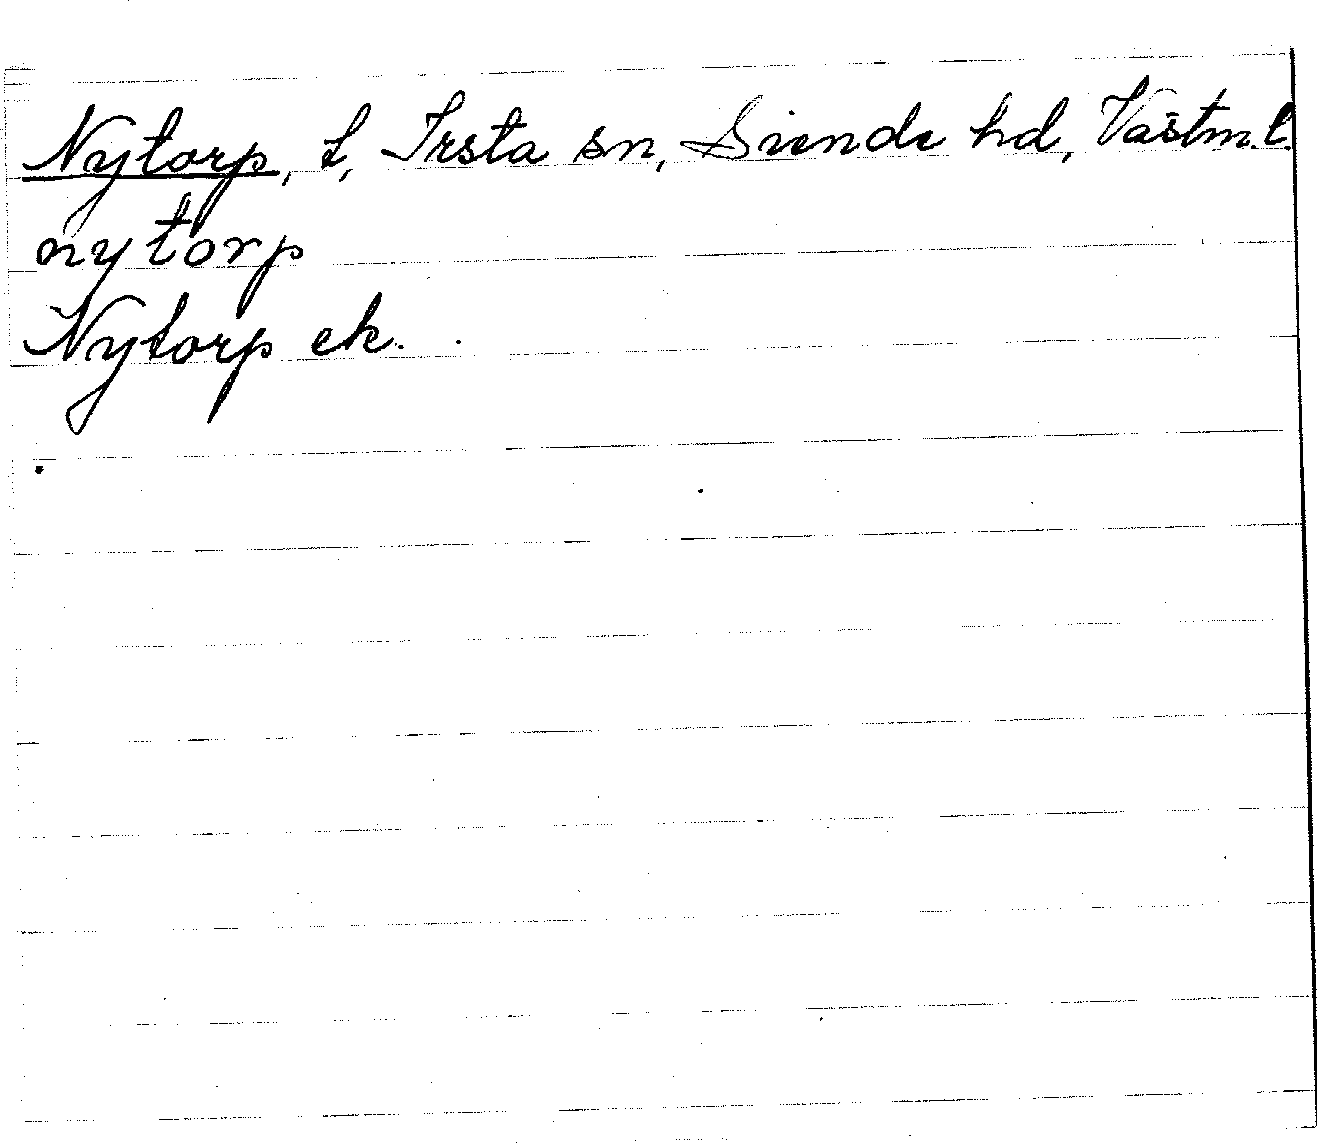 Nytorp, t, Irsta sn, Siende hd, Västm.l.
nytorp
Nytorp ek.